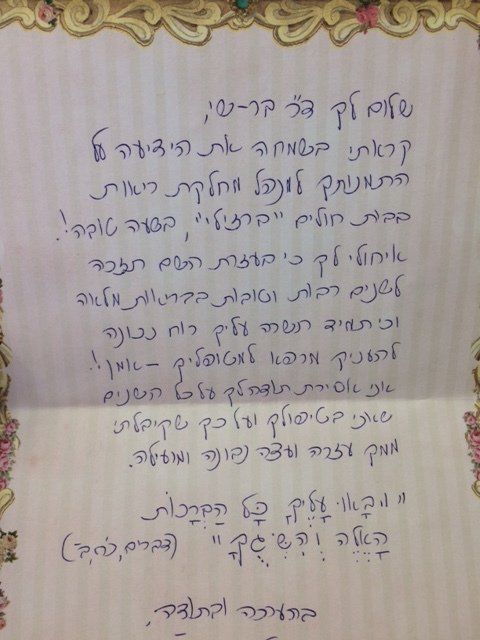 שלום לך ד"ר בר-שי,
קראתי בשמחה את הידיעה על
התמנותך למנהל מחלקת ריאות
בבית חולים "ברזילי", בשעה טובה!.
איחולי לך כי בעזרת השם תזכה
לשנים רבות וטובות בבריאות מלאה
וכי תמיד תשרה עליך רוח נכונה
להעניק מרפא למטופליך - אמן!.
אני אסירת תודה לך על כל השנים
שאני בטיפולך ועל כך שקיבלתי
ממך עזרה ועצה נבונה ומועילה.
"וּבָאוּ עָלֶיךָ כָּל הַבְּרָכוֹת
הָאֵלֶּה וְהִשִּׂיגֻךָ" (דברים, כ"ח, ב')
בהערכה ובתודה,